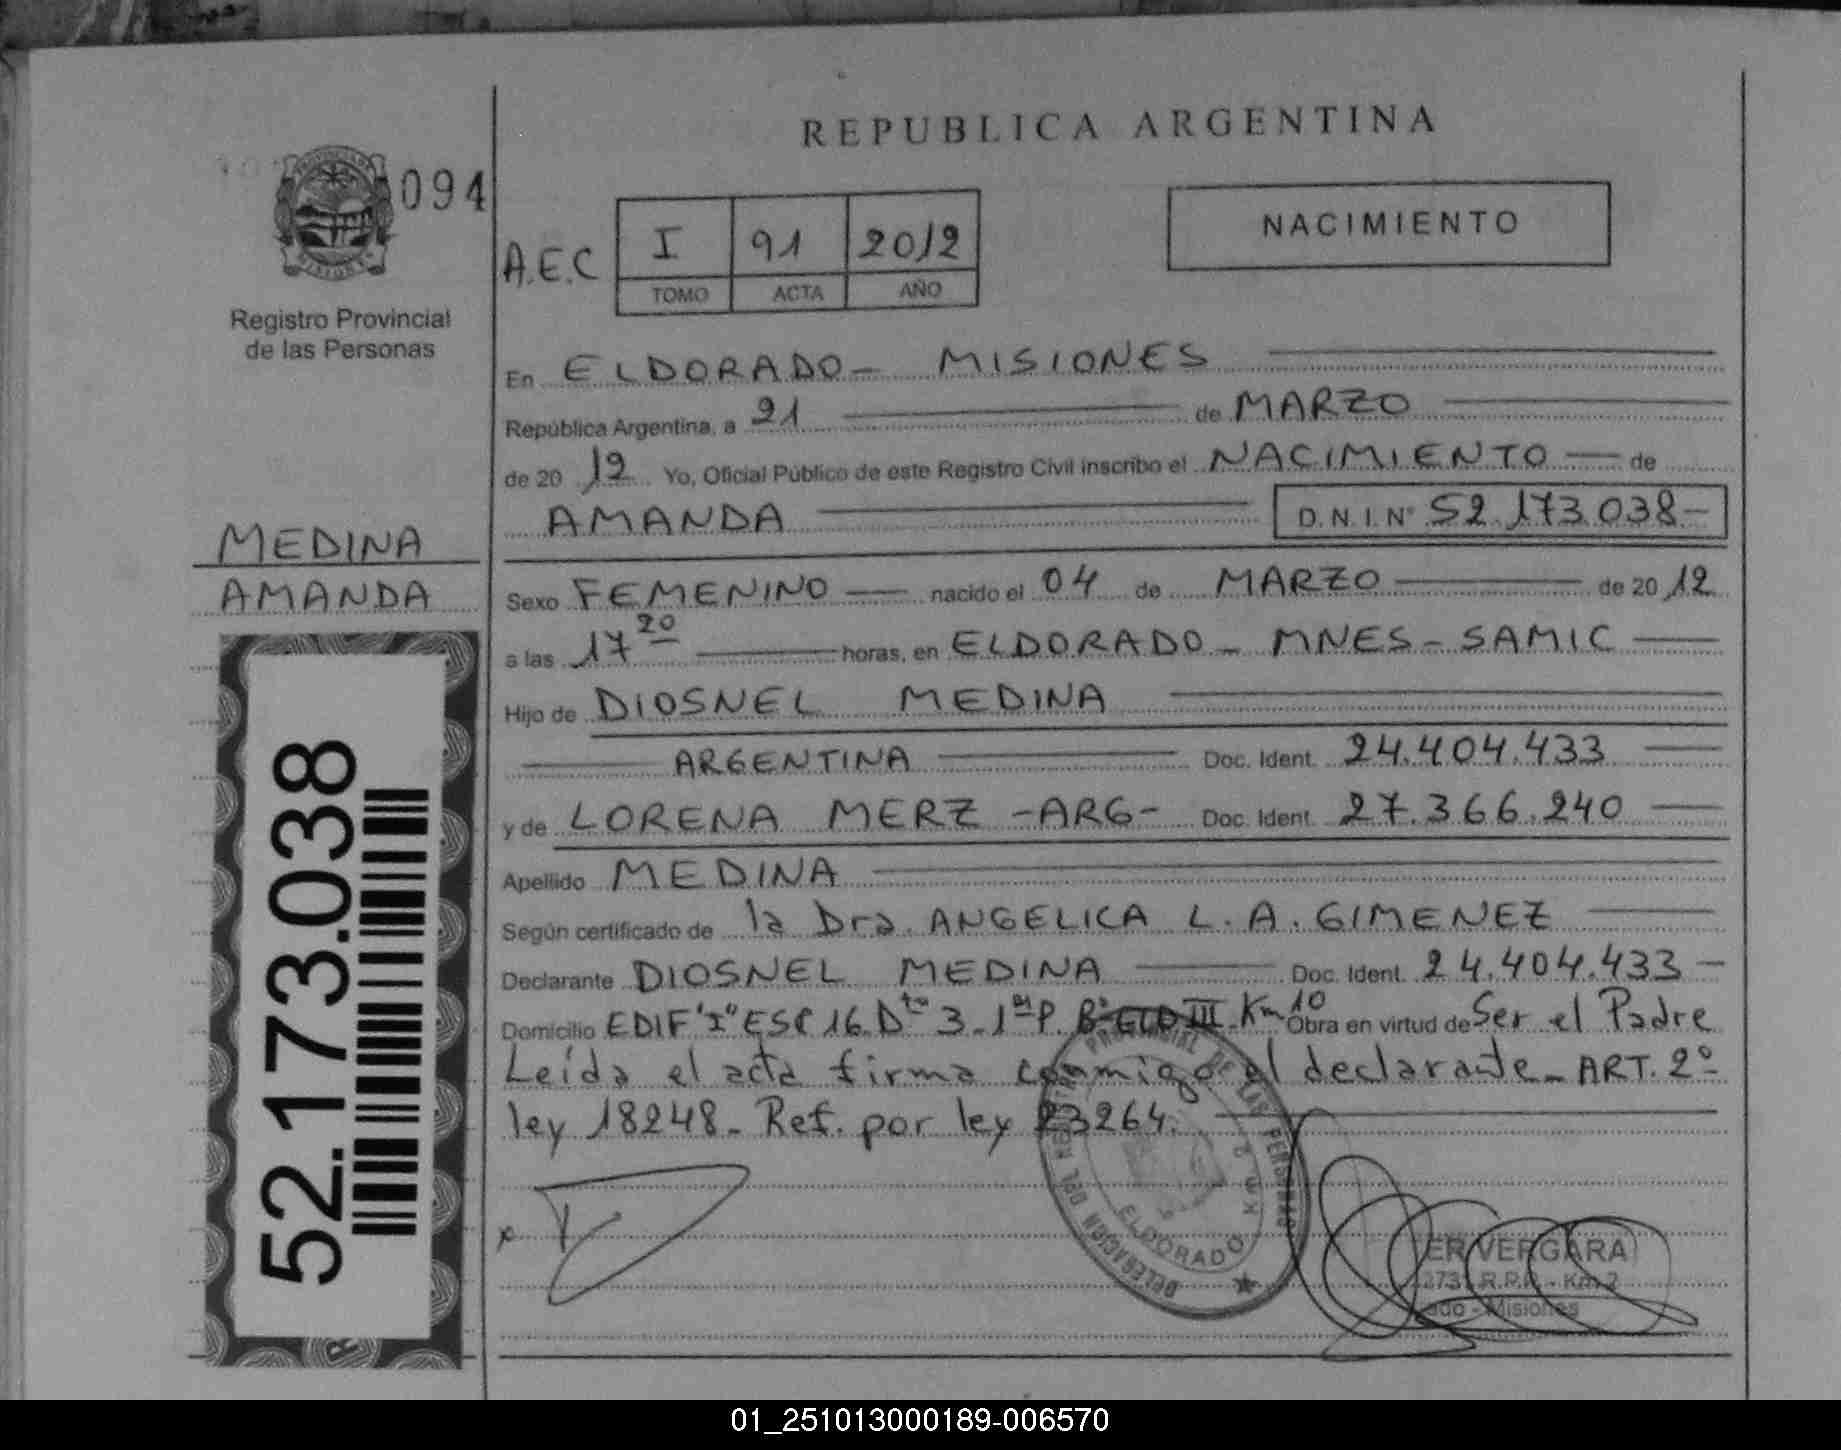 REPUBLICA ARGENTINA
094
PROVINCIA DE MISIONES
Registro Provincial
de las Personas
A.E.C
I 91 2012
TOMO ACTA AÑO
NACIMIENTO
En ELDORADO - MISIONES
República Argentina, a 21 de MARZO
de 2012 Yo, Oficial Público de este Registro Civil inscribo el NACIMIENTO de
AMANDA D.N.I. Nº 52.173.038-
MEDINA
AMANDA
52.173.038
Sexo FEMENINO nacido el 04 de MARZO de 2012
a las 17 20 horas, en ELDORADO - MNES - SAMIC
Hijo de DIOSNEL MEDINA
ARGENTINA Doc. Ident. 24.404.433
y de LORENA MERZ -ARG- Doc. Ident. 27.366.240
Apellido MEDINA
Según certificado de la Dra. ANGELICA L. A. GIMENEZ
Declarante DIOSNEL MEDINA Doc. Ident. 24.404.433
Domicilio EDIF "I" ESC 16 Dto 3 - 1er P. Bº ELD III Km 10 Obra en virtud de Ser el Padre
Leída el acta firma conmigo el declarante - ART. 2º
ley 18248 - Ref. por ley 23264.
DELEGACION DEL REGISTRO PROVINCIAL DE LAS PERSONAS
ELDORADO KM. 2
ER VERGARA
R.P.P. - Km 2
ado - Misiones
01_251013000189-006570